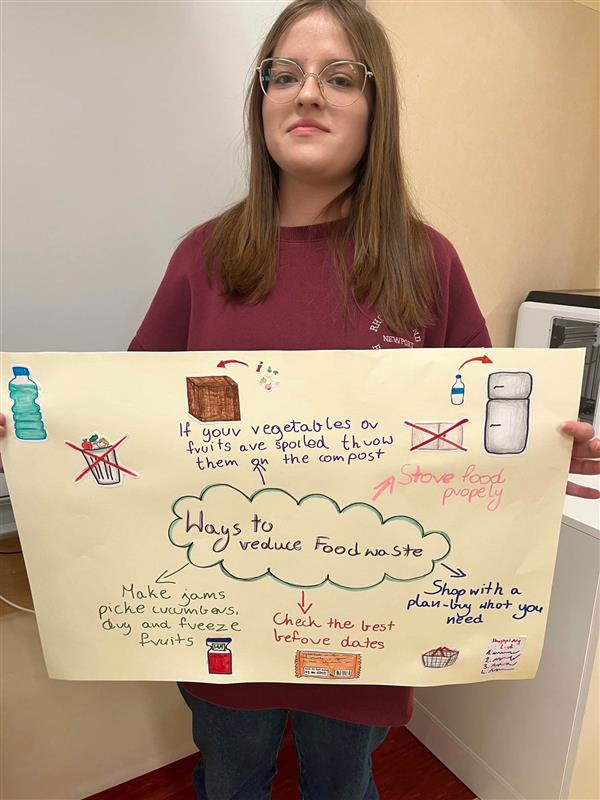 RHO
NEWPORT
If your vegetables or
fruits are spoiled throw
them on the compost
Store food
properly
Ways to
reduce Food waste
Make jams
pickle cucumbers,
dry and freeze
fruits
Check the best
before dates
Shop with a
plan-buy what you
need
Shopping
List
1.
2.
3.
4.